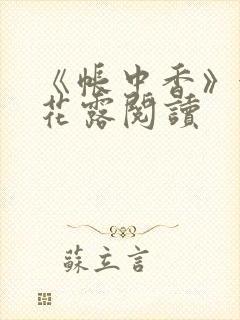 《帳中香》
花露閱讀
蘇立言